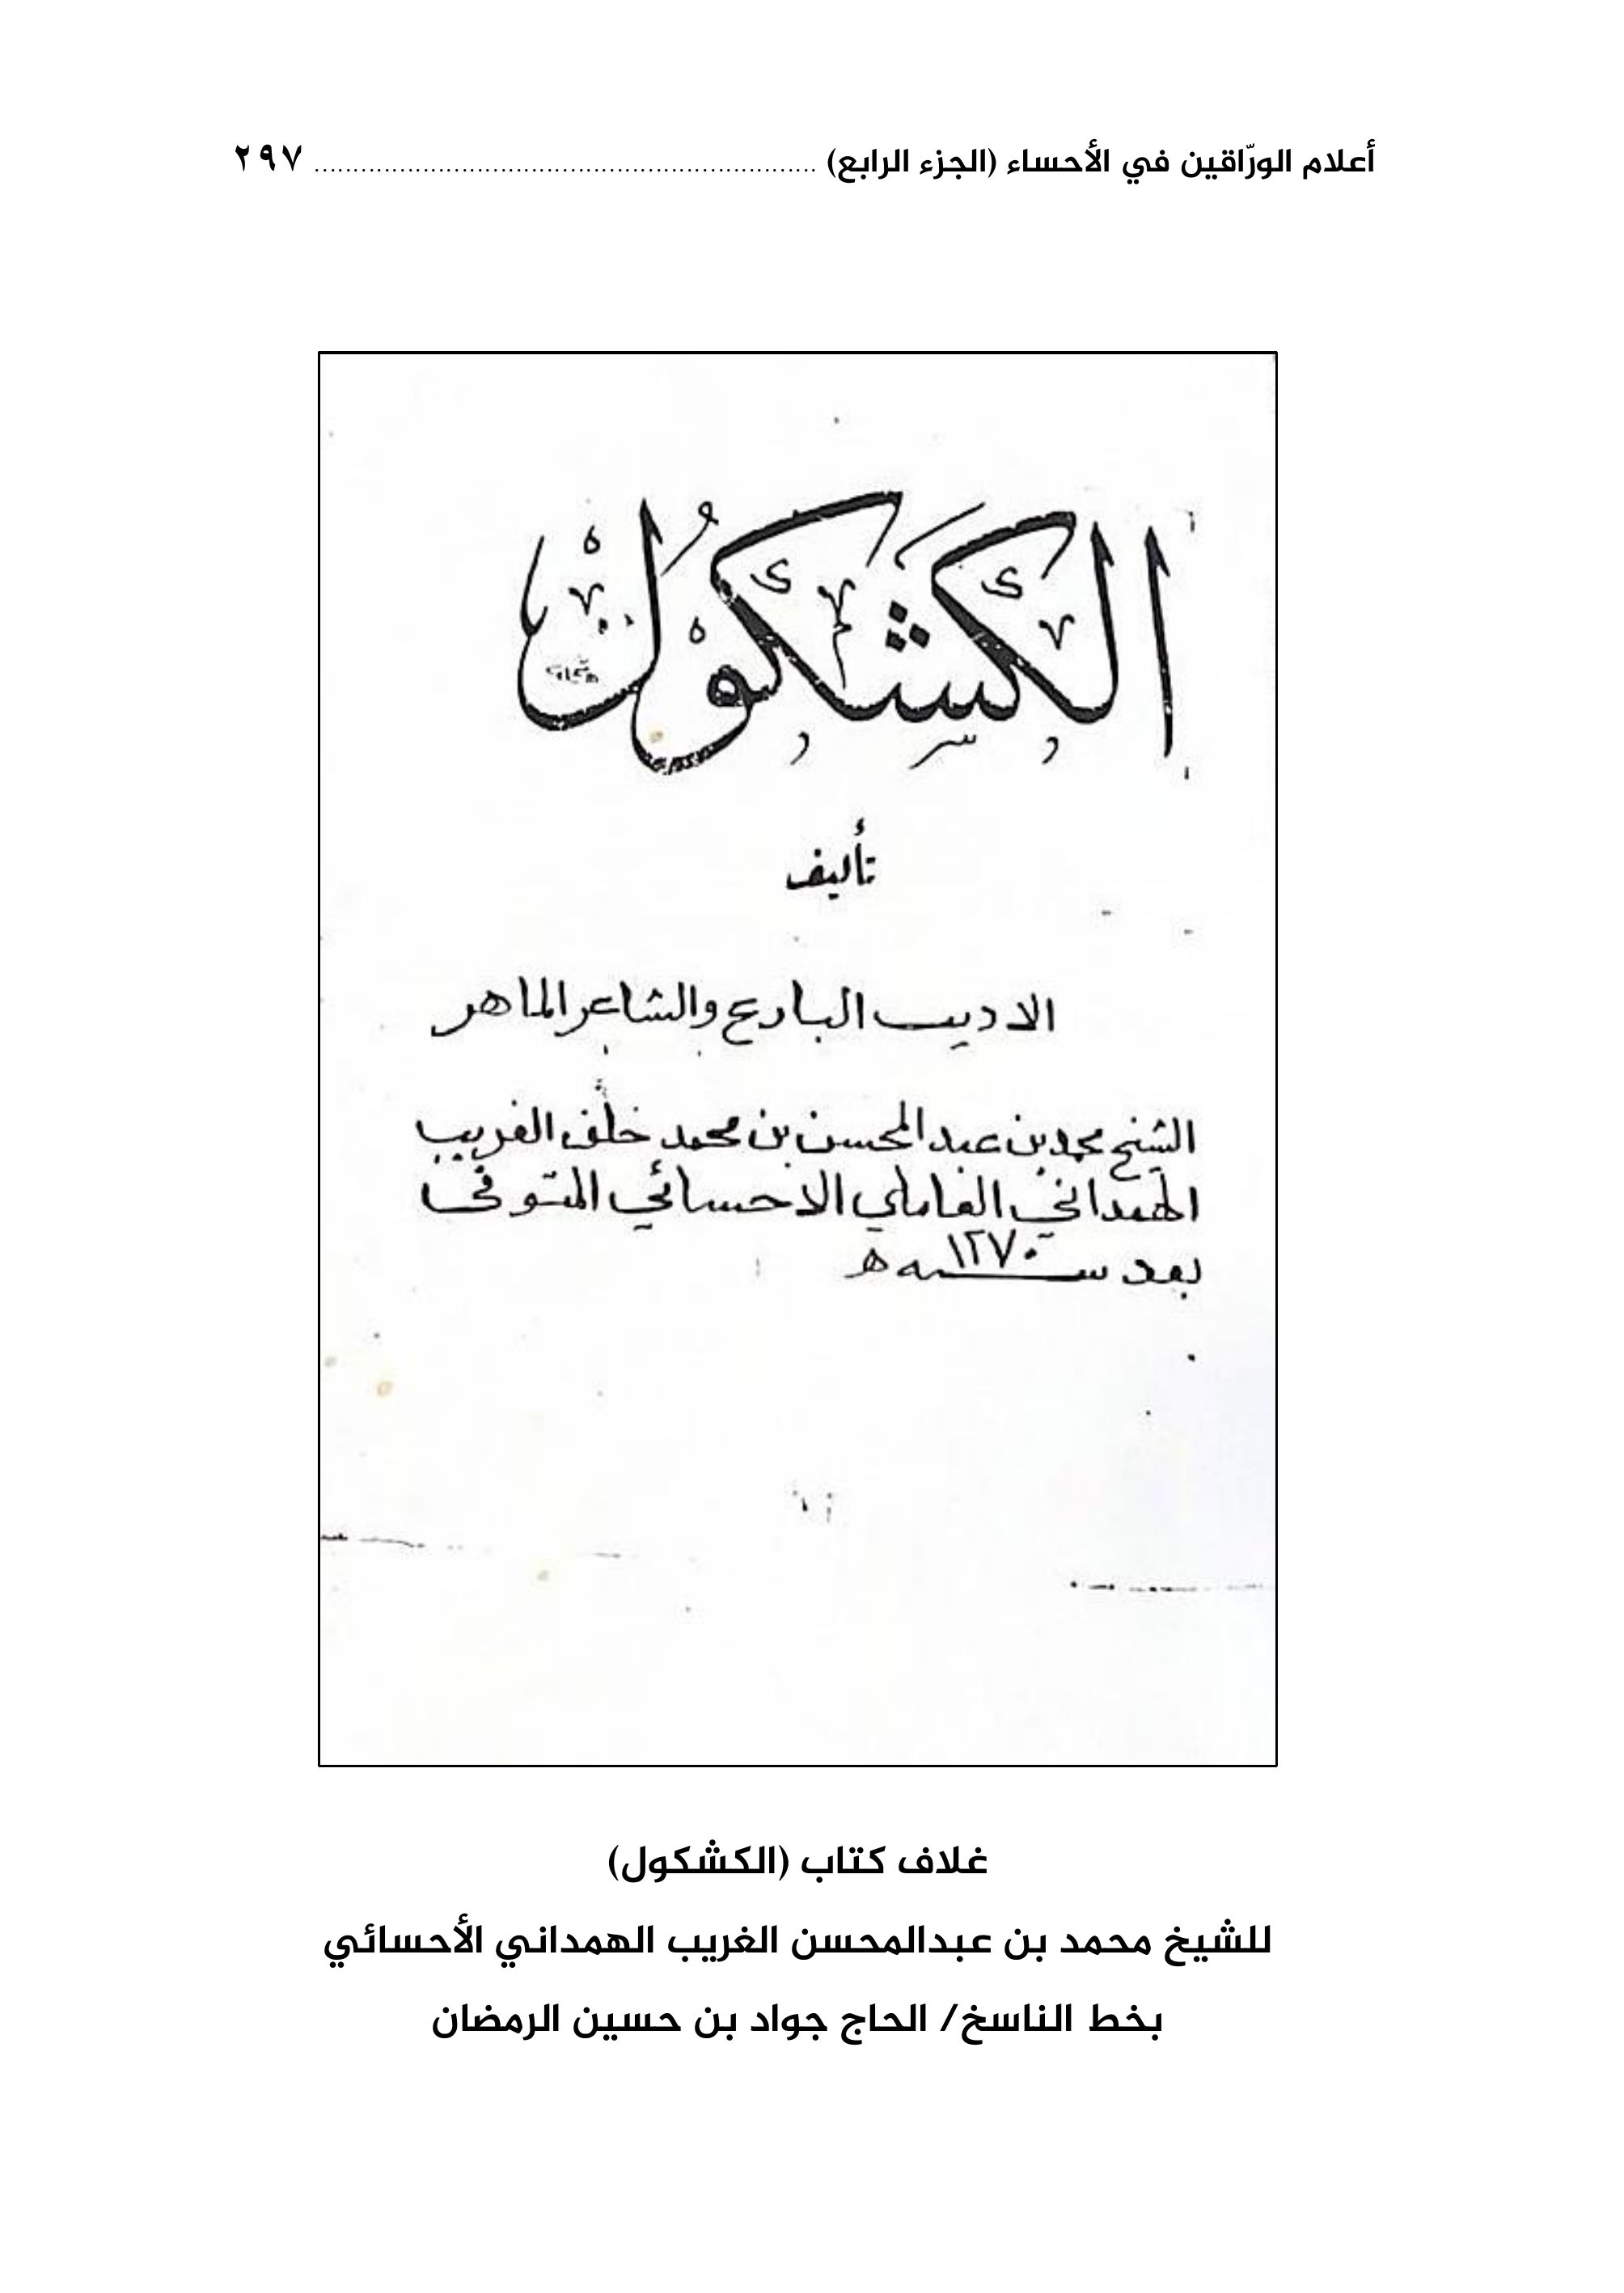 أعلام الورّاقين في الأحساء (الجزء الرابع) ................................................................ ٢٩٧
الكشكول
تأليف
الاديب البارع والشاعر الماهر
الشيخ محمد بن عبد المحسن بن محمد خلف الغريب
الهمداني العاملي الاحسائي المتوفى
بعد سنه ١٢٧٠ ه
غلاف كتاب (الكشكول)
للشيخ محمد بن عبدالمحسن الغريب الهمداني الأحسائي
بخط الناسخ/ الحاج جواد بن حسين الرمضان